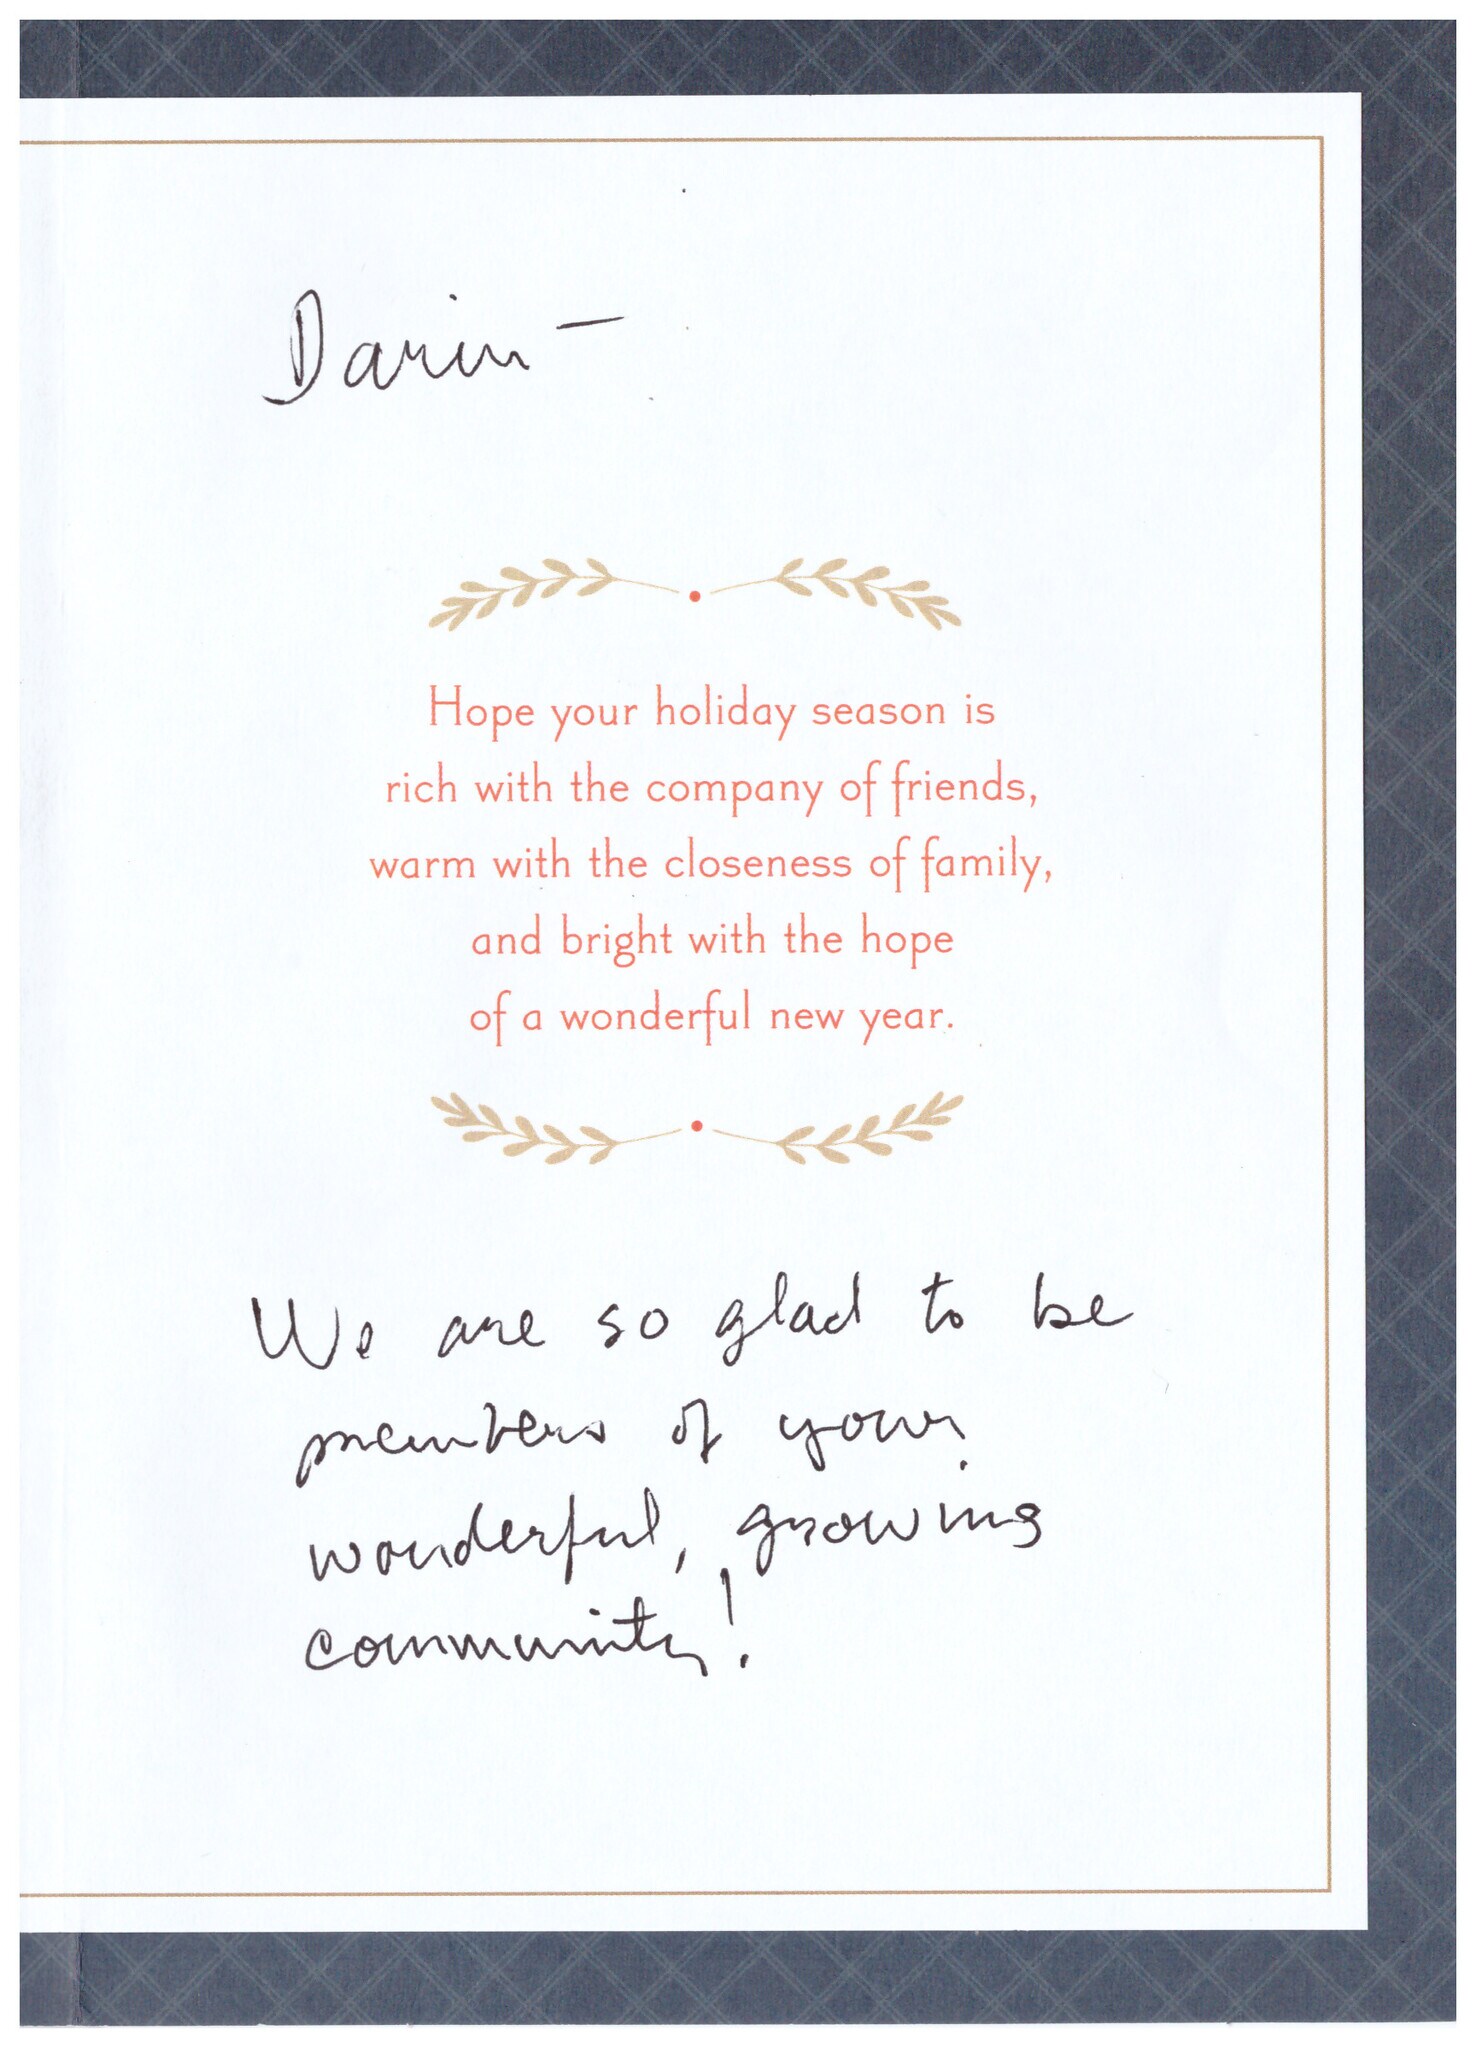 Darin –
Hope your holiday season is
rich with the company of friends,
warm with the closeness of family,
and bright with the hope
of a wonderful new year.
We are so glad to be
members of your
wonderful, growing
community!